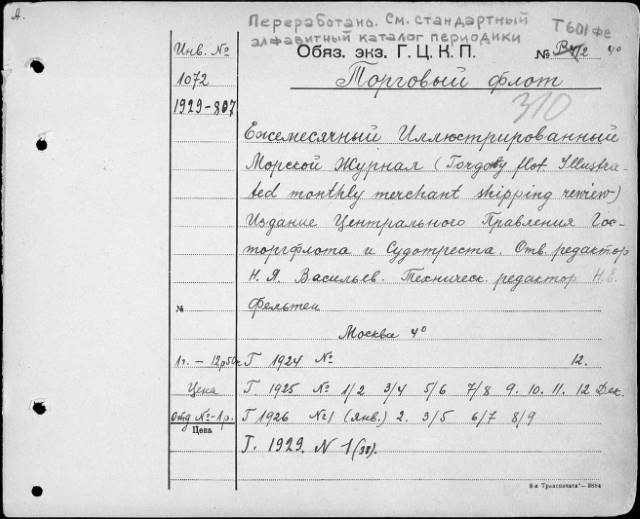 А.
Переработано. См. стандартный
алфавитный каталог периодики
Т601 фе
Инв. №
Обяз. экз. Г. Ц. К. П.
№ 2 4°
1072
Торговый флот
1929-807
310
Ежемесячный Иллюстрированный
Морской Журнал (Torgovy flot. Illustra-
ted monthly merchant shipping review)
Издание Центрального Правления Гос-
торгфлота и Судотреста. Отв. редактор
Н. Я. Васильев. Техническ. редактор Н. Е.
№ Фельтен
Москва 4°
1 г. — 12 р. 50 к. Г 1924 № 12.
Цена Г. 1925 № 1/2 3/4 5/6 7/8 9. 10. 11. 12 Дек.
отд №-1 р. Г 1926 №1 (янв.) 2. 3/5 6/7 8/9
Цень
Г. 1929. N 1 (38).
9-я „Транспечать“ — 3884